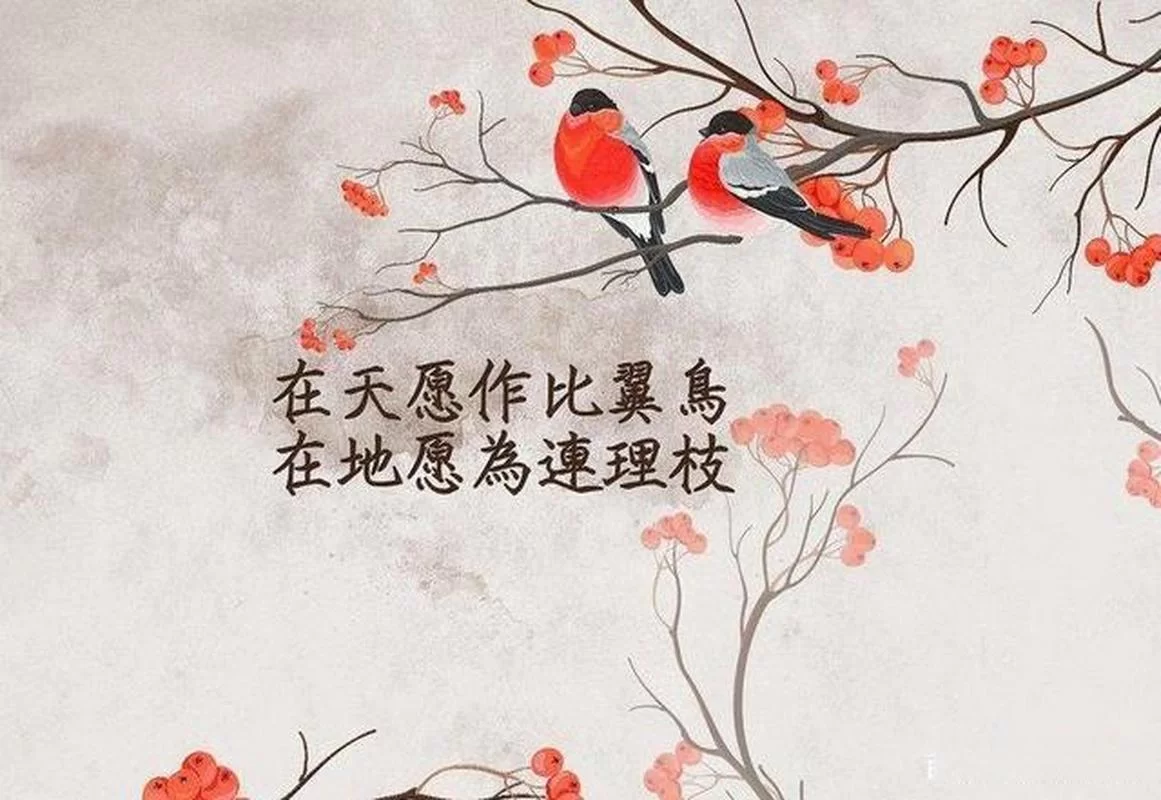 在天愿作比翼鳥
在地愿為連理枝